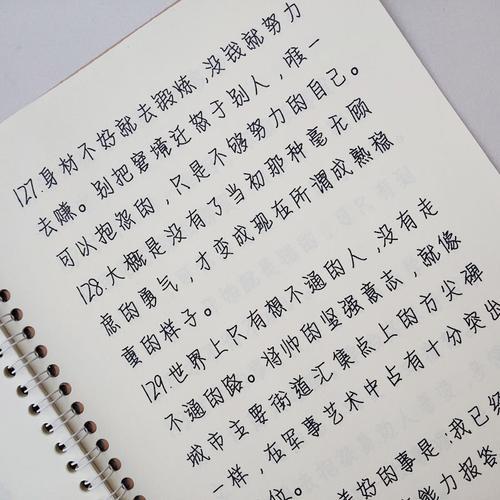 127.身材不好就去锻炼,没钱就努力
去赚。别把窘境迁怒于别人,唯一
可以抱怨的,只是不够努力的自己。
128.大概是没有了当初那种毫无顾
虑的勇气,才变成现在所谓成熟稳
重的样子。
129.世界上只有想不通的人,没有走
不通的路。将帅的坚强意志,就像
城市主要街道汇集点上的方尖碑
一样,在军事艺术中占有十分突出
位。
美好的事是,我已经
能力报答